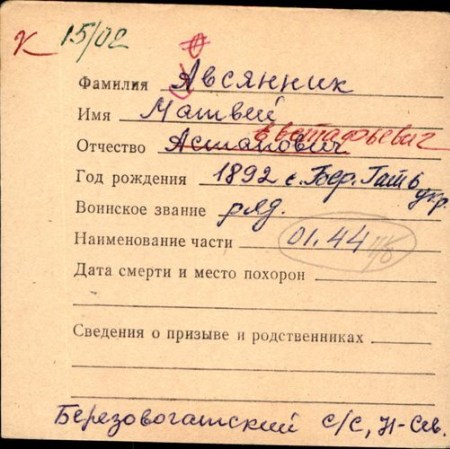 К 15/02
О
Фамилия Авсянник
Имя Матвей
Евстафьевич
Отчество Астапович
Год рождения 1892 с. Бер. Гать
укр.
Воинское звание ряд.
Наименование части 01.44
Дата смерти и место похорон
Сведения о призыве и родственниках
Березовогатский с/с, Н-Сев.